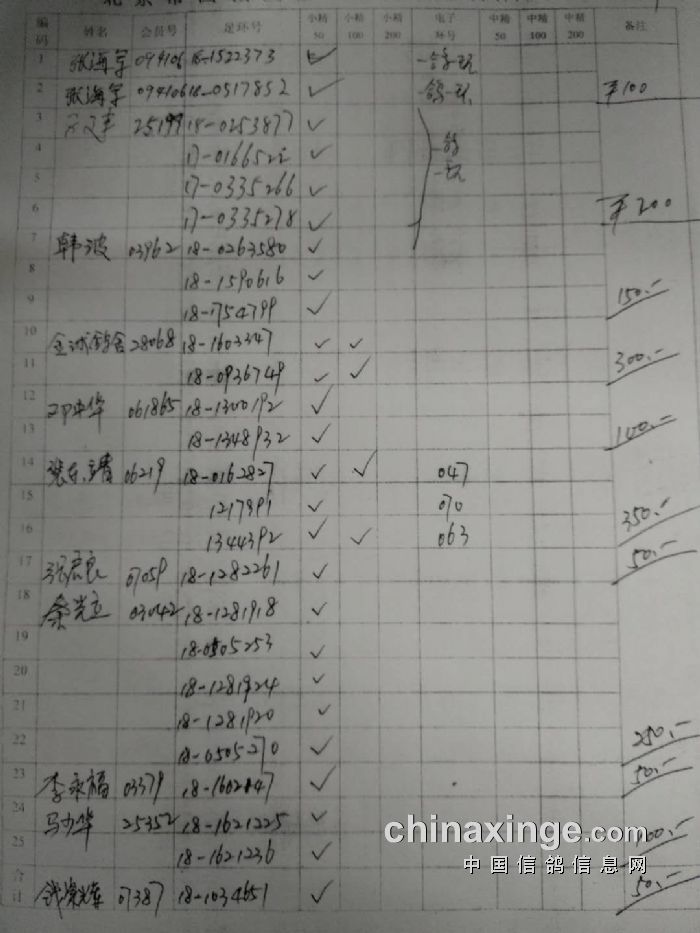 编码 姓名 会员号 足环号 小精50 小精100 小精200 电子环号 中精50 中精100 中精200 备注
1 张海军 094106 18-1522373 ✓ 一鸽一环
2 张海军 094106 18-0517852 ✓ 一鸽一环 ¥100
3 25199 18-0253877 ✓ 一鸽一环
4 17-0166522 ✓
5 17-0335266 ✓
6 17-0335278 ✓ ¥200
7 韩波 03962 18-0263580 ✓
8 18-1590616 ✓
9 18-1754799 ✓ 150.-
10 28068 18-1603347 ✓ ✓
11 18-0936749 ✓ ✓ 300.-
12 邓中华 061865 18-1300192 ✓
13 18-1348932 ✓ 100.-
14 06219 18-0162827 ✓ ✓ 047
15 1217891 ✓ 070
16 1344392 ✓ ✓ 063 350.-
17 张君良 07059 18-1282261 ✓ 50.-
18 秦光立 03042 18-1281918 ✓
19 18-0505253 ✓
20 18-1281924 ✓
21 18-1281920 ✓
22 18-0505270 ✓ 250.-
23 李永福 03379 18-1602847 ✓ 50.-
24 马少华 25352 18-1621225 ✓
25 18-1621236 ✓ 100.-
合计 07387 18-1034651 ✓ 50.-
chinaxinge.com
中国信鸽信息网